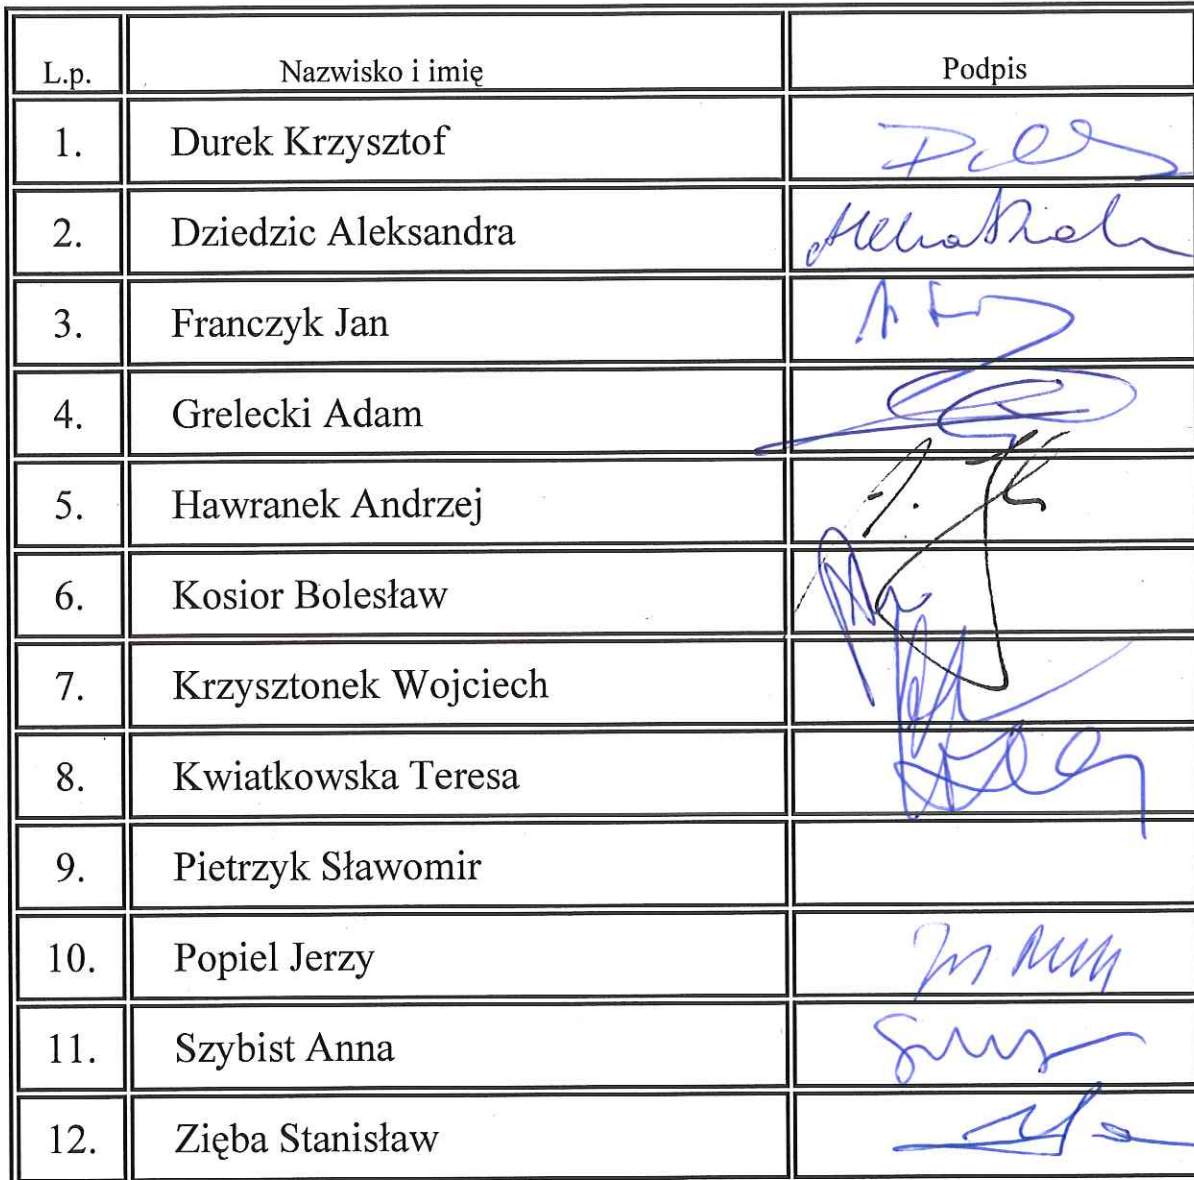 L.p. Nazwisko i imię Podpis
1. Durek Krzysztof
2. Dziedzic Aleksandra
3. Franczyk Jan
4. Grelecki Adam
5. Hawranek Andrzej
6. Kosior Bolesław
7. Krzysztonek Wojciech
8. Kwiatkowska Teresa
9. Pietrzyk Sławomir
10. Popiel Jerzy
11. Szybist Anna
12. Zięba Stanisław